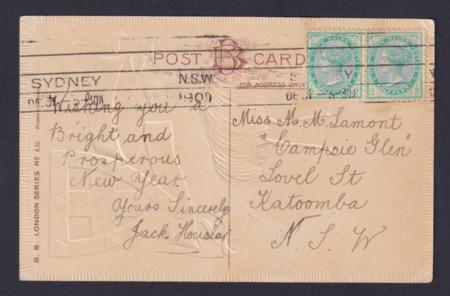 POST B CARD
FOR ADDRESS ONLY
SYDNEY
N.S.W.
1909
DE 31
Wishing you a
Bright and
Prosperous
New Year
Yours Sincerely
Jack
Miss M. M. Lamont
"Campsie Glen"
Lovel St
Katoomba
N. S. W
B. B. LONDON SERIES No A32